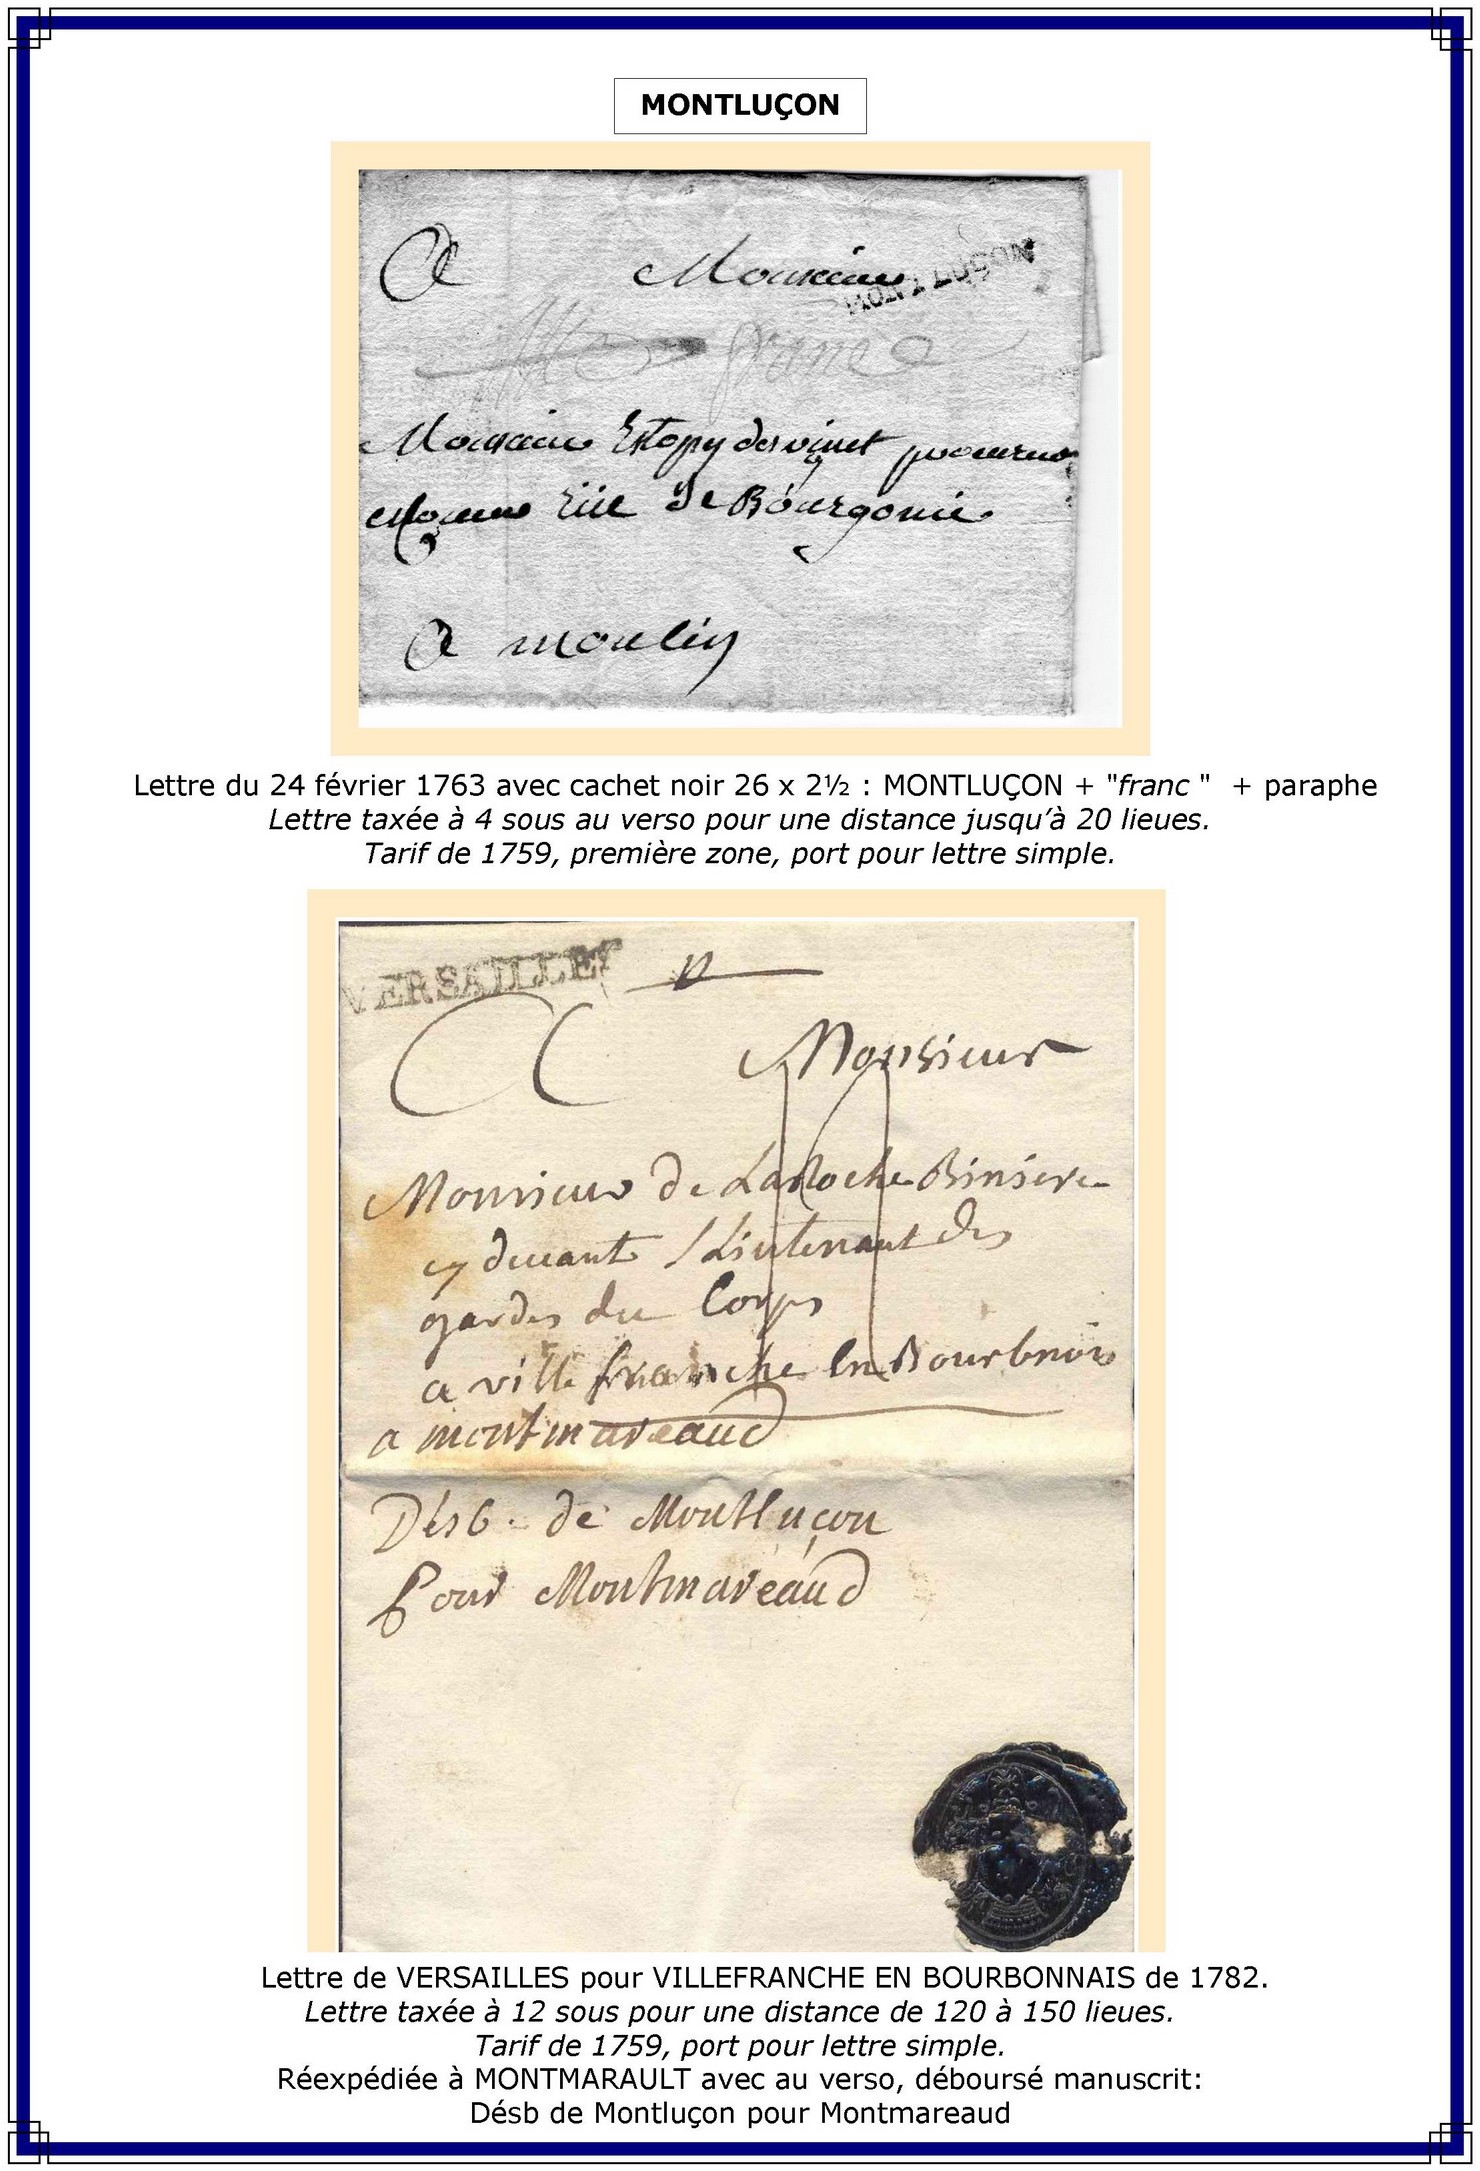 MONTLUÇON
A Monsieur
MONTLUÇON
franc
Monsieur Estopy desvinet procureur
Rüe De Bourgonie
A moulin
Lettre du 24 février 1763 avec cachet noir 26 x 2½ : MONTLUÇON + "franc " + paraphe
Lettre taxée à 4 sous au verso pour une distance jusqu’à 20 lieues.
Tarif de 1759, première zone, port pour lettre simple.
VERSAILLES
A Monsieur
Monsieur de LaRoche Binsere
cy devant Lieutenant des
gardes du Corps
a ville franche En Bourbnois
a montmareaud
Désb. de Montluçon
Pour Montmareaud
Lettre de VERSAILLES pour VILLEFRANCHE EN BOURBONNAIS de 1782.
Lettre taxée à 12 sous pour une distance de 120 à 150 lieues.
Tarif de 1759, port pour lettre simple.
Réexpédiée à MONTMARAULT avec au verso, déboursé manuscrit:
Désb de Montluçon pour Montmareaud